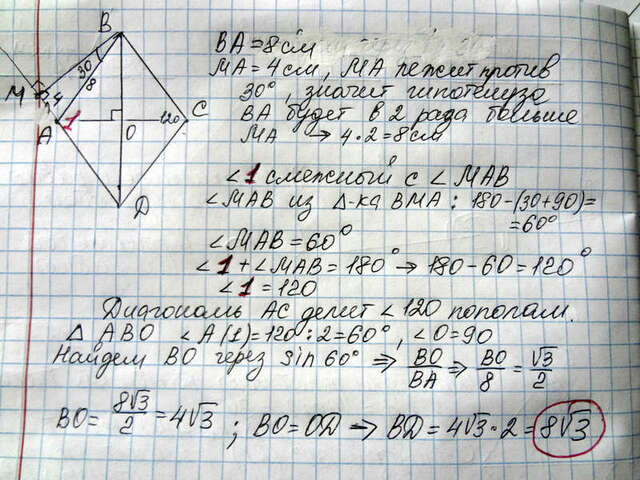 B
30
8
M
4
A
1
O
120
C
D
BA = 8 см
MA = 4 см, MA лежит против
30°, значит гипотенуза
BA будет в 2 раза больше
MA → 4·2 = 8 см
∠1 смежный с ∠MAB
∠MAB из Δ-ка BMA: 180-(30+90)=
=60°
∠MAB = 60°
∠1 + ∠MAB = 180° → 180-60=120°
∠1 = 120
Диагональ AC делит ∠120 пополам.
Δ ABO ∠A(1)=120:2=60°, ∠O=90
Найдем BO через sin 60° ⇒ BO/BA ⇒ BO/8 = √3/2
BO = 8√3/2 = 4√3 ; BO=OD → BD = 4√3·2 = 8√3